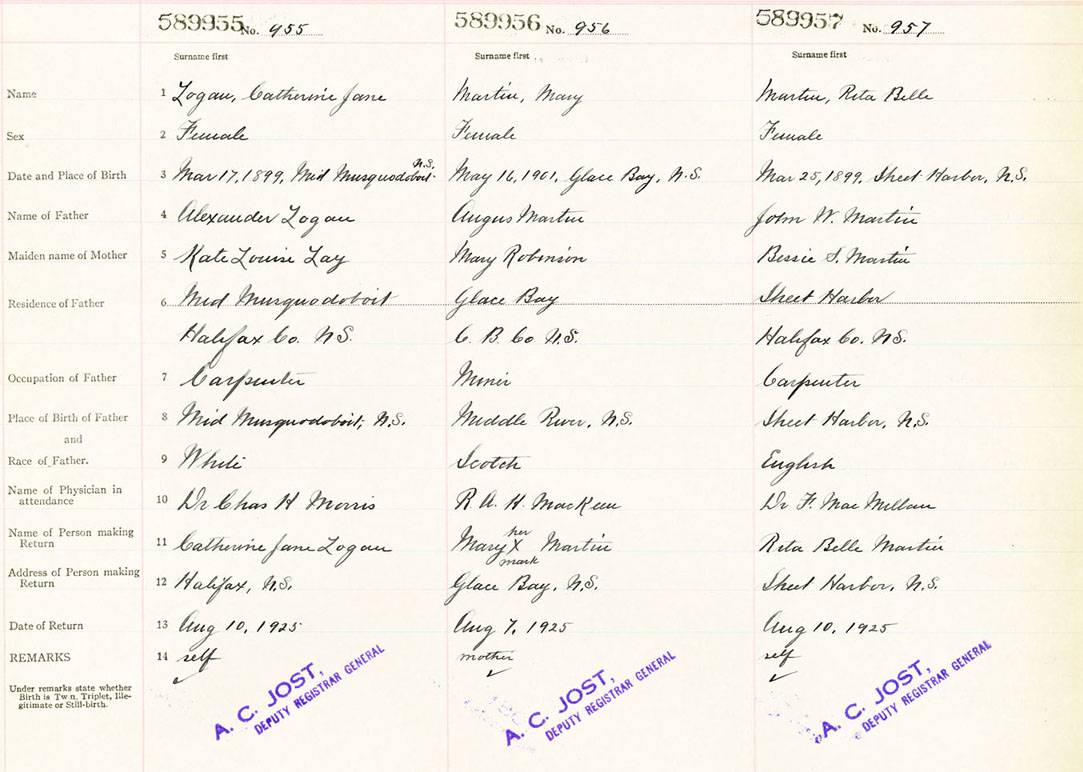 589955 No. 955 589956 No. 956 589957 No. 957
Surname first Surname first Surname first
Name 1 Logan, Catherine Jane Martin, Mary Martin, Rita Belle
Sex 2 Female Female Female
N.S.
Date and Place of Birth 3 Mar 17, 1899, Mid Musquodoboit May 16, 1901, Glace Bay, N.S. Mar 25, 1899, Sheet Harbor, N.S.
Name of Father 4 Alexander Logan Angus Martin John W. Martin
Maiden name of Mother 5 Kate Louise Lay Mary Robinson Bessie S. Martin
Residence of Father 6 Mid Musquodoboit Glace Bay Sheet Harbor
Halifax Co. N.S. C. B. Co N.S. Halifax Co. N.S.
Occupation of Father 7 Carpenter Miner Carpenter
Place of Birth of Father 8 Mid Musquodoboit, N.S. Middle River, N.S. Sheet Harbor, N.S.
and
Race of Father. 9 White Scotch English
Name of Physician in
attendance 10 Dr Chas H Morris R. A. H. MacKeen Dr F. Mac Millan
Name of Person making her
Return 11 Catherine Jane Logan Mary X Martin Rita Belle Martin
mark
Address of Person making
Return 12 Halifax, N.S. Glace Bay, N.S. Sheet Harbor, N.S.
Date of Return 13 Aug 10, 1925 Aug 7, 1925 Aug 10, 1925
REMARKS 14 self mother self
Under remarks state whether
Birth is Twin, Triplet, Ille-
gitimate or Still-birth.
A. C. JOST, A. C. JOST, A. C. JOST,
DEPUTY REGISTRAR GENERAL DEPUTY REGISTRAR GENERAL DEPUTY REGISTRAR GENERAL